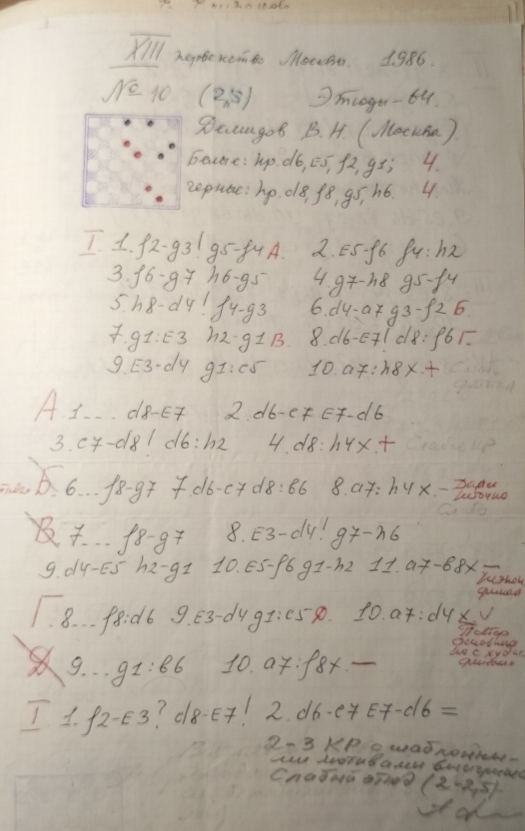 XIII первенство Москвы. 1986.
№ 10 (2,5) Этюды-64.
Демидов В.Н. (Москва).
Белые: пр. d6, E5, f2, g1; 4.
чёрные: пр. d8, f8, g5, h6. 4.
I. 1. f2-g3! g5-f4 А. 2. E5-f6 f4:h2
3. f6-g7 h6-g5 4. g7-h8 g5-f4
5. h8-d4! f4-g3 6. d4-a7 g3-f2 Б.
7. g1:E3 h2-g1 В. 8. d6-E7! d8:f6 Г.
9. E3-d4 g1:c5 10. a7:h8x. +
А 1.... d8-E7 2. d6-c7 E7-d6
3. c7-d8! d6:h2 4. d8:h4x. +
Б. 6... f8-g7 7. d6-c7 d8:b6 8. a7:h4x. -
В 7... f8-g7 8. E3-d4! g7-h6
9. d4-E5 h2-g1 10. E5-f6 g1-h2 11. a7-b8x -
финал
Г. 8... f8:d6 9. E3-d4 g1:c5 Д. 10. a7:d4x. v
Д 9... g1:b6 10. a7:f8x. -
I 1. f2-E3? d8-E7! 2. d6-c7 E7-d6 =
2-3 КР с шаблонны-
ми мотивами выигрыша
Слабый этюд (2-2,5)